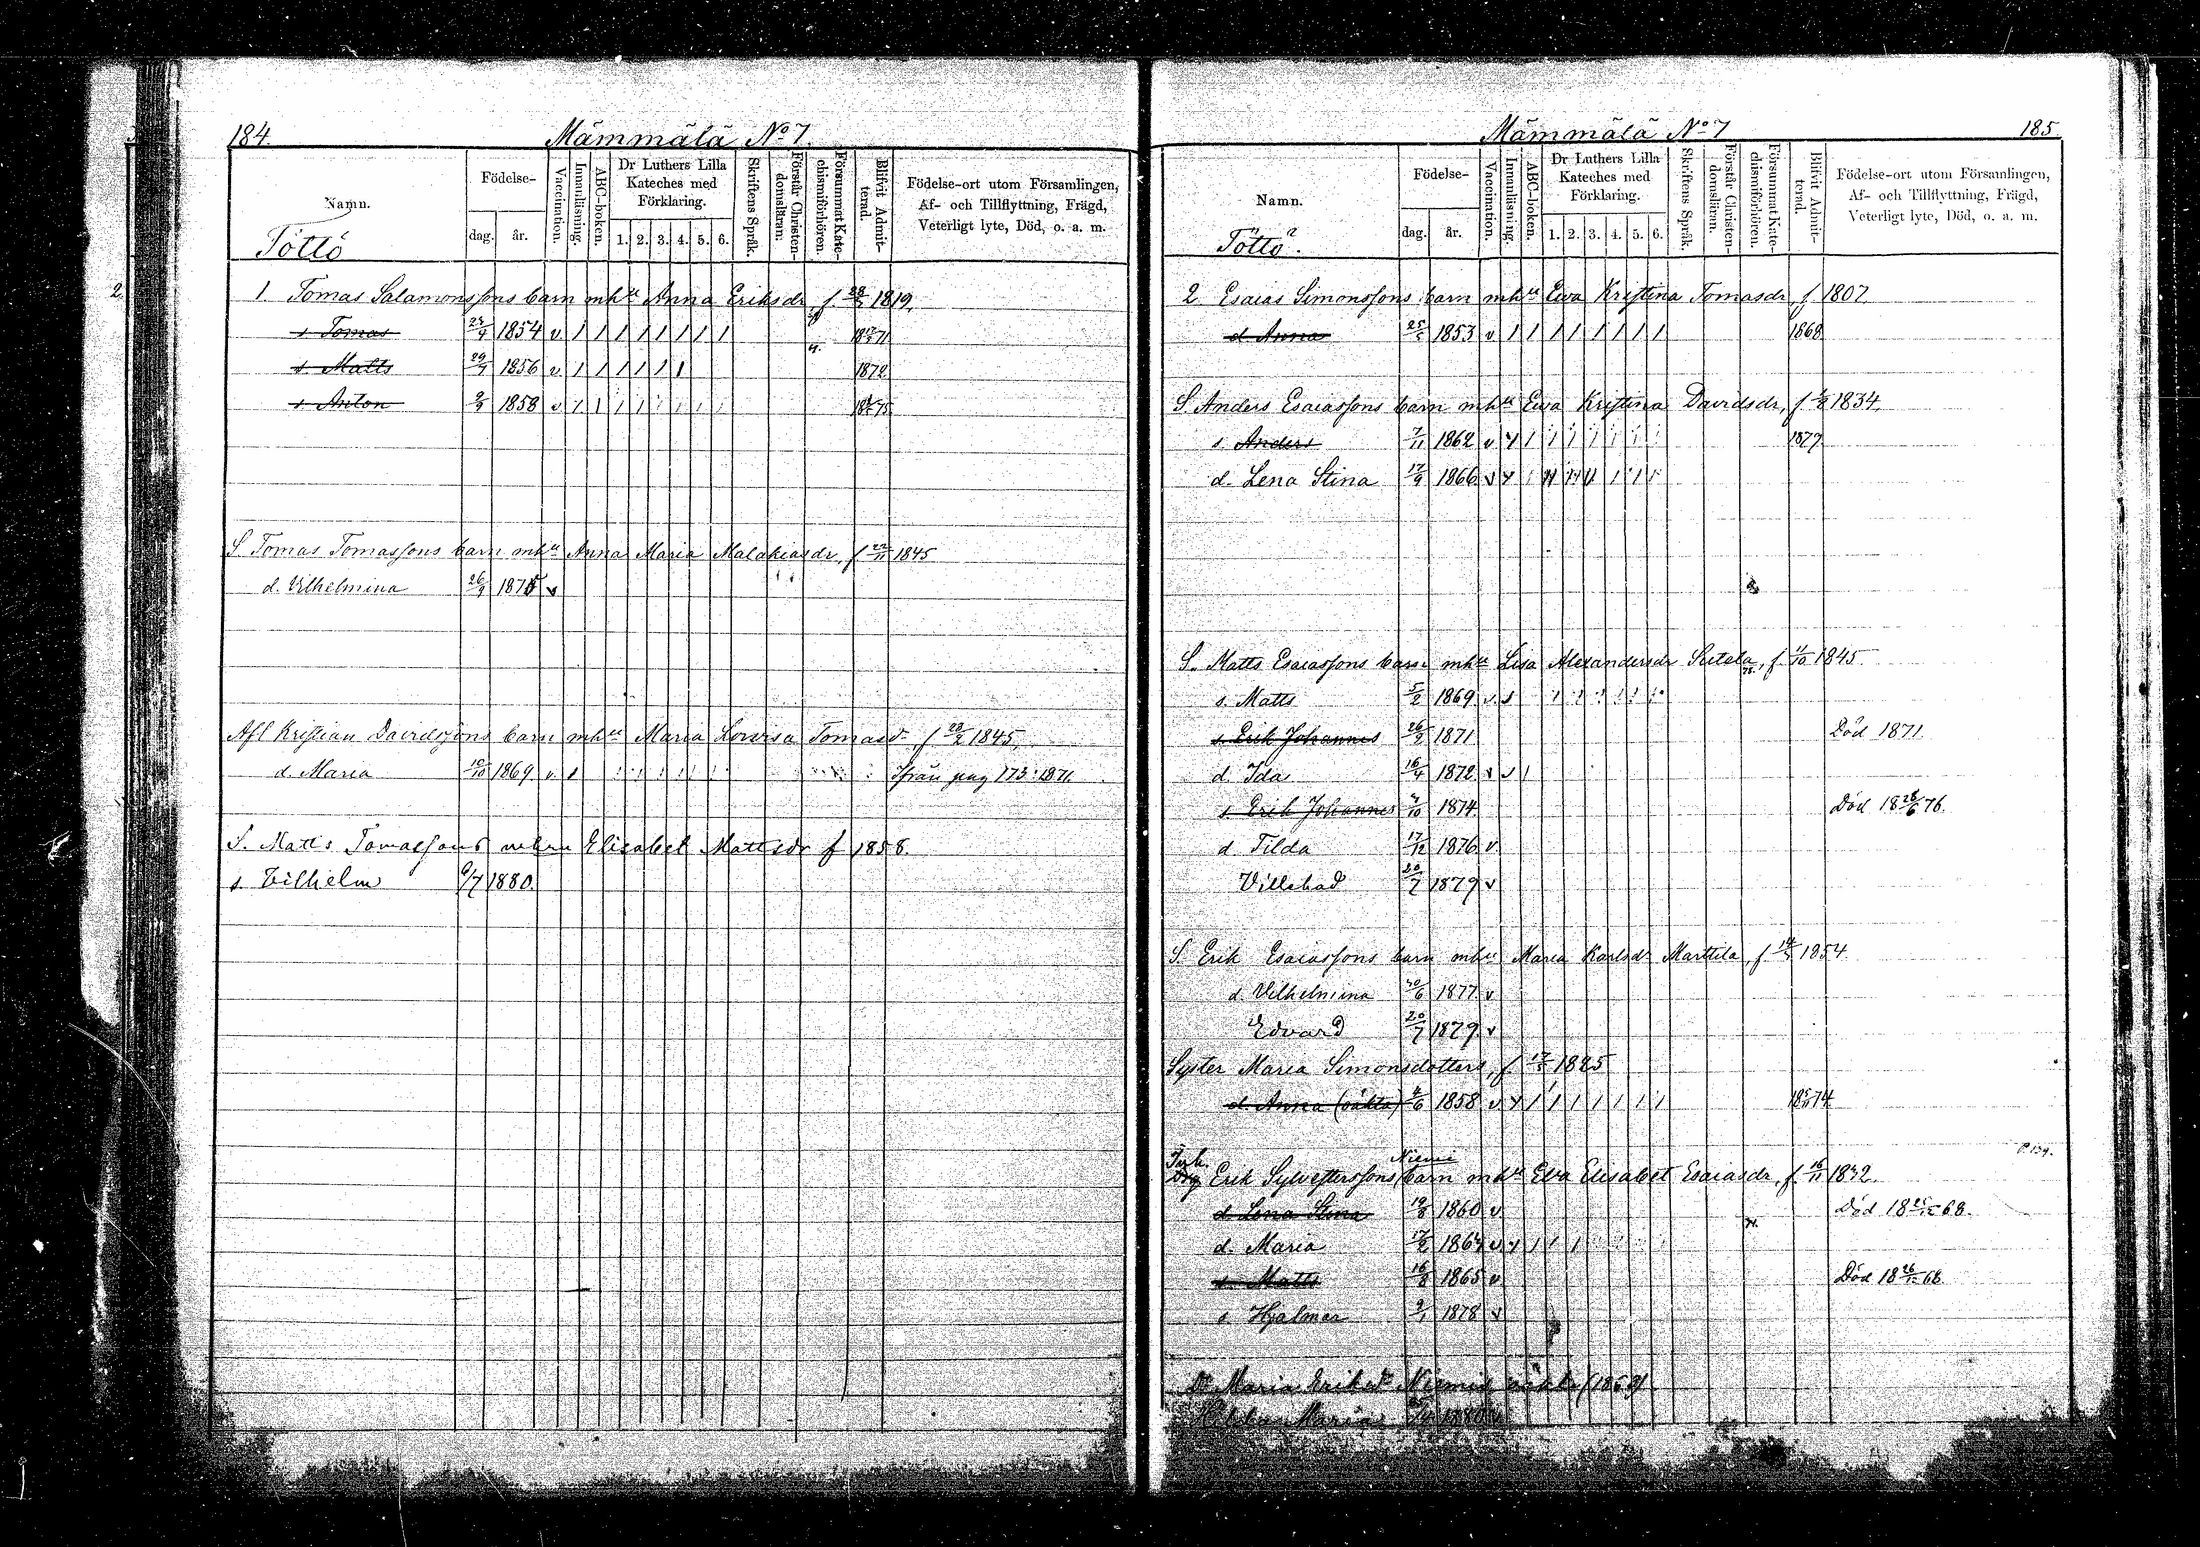 184.
Mämmälä No 7.
Namn.
Födelse-
dag.
år.
Vaccination.
Innanläsning.
ABC-boken.
Dr Luthers Lilla Kateches med Förklaring.
1. 2. 3. 4. 5. 6.
Skriftens Språk.
Förstår Christen-domsläran.
Försummat Kate-chismiförhören.
Blifvit Admit-terad.
Födelse-ort utom Församlingen, Af- och Tillflyttning, Frägd, Veterligt lyte, Död, o. a. m.
Töttö
2
1. Tomas Salamonssons barn mhu Anna Eriksdr f 28/3 1819.
s Tomas 1854 v
s Matts 1856 v. 1872
s Anton 1858 v
S. Tomas Tomassons barn mhu Anna Maria Malakiasdr, f 22/11 1845
d. Vilhelmina 26/9 1875 v
Afl Kristian Davidssons barn mhu Maria Lovisa Tomasdr f 23/2 1845.
d. Maria 10/10 1869 v. Ifrån pag 173: 1871.
S. Matts Tomassons Elisabet Mattsdr f 1858.
s Vilhelm 6/7 1880.
Mämmälä No 7
185
Namn.
Födelse-
dag.
år.
Vaccination.
Innanläsning.
ABC-boken.
Dr Luthers Lilla Kateches med Förklaring.
1. 2. 3. 4. 5. 6.
Skriftens Språk.
Förstår Christen-domsläran.
Försummat Kate-chismiförhören.
Blifvit Admit-terad.
Födelse-ort utom Församlingen, Af- och Tillflyttning, Frägd, Veterligt lyte, Död, o. a. m.
Töttö.
2 Esaias Simonssons barn mhu Eva Kristina Tomasdr, f 1807.
d Anna 1853 v 1868
S. Anders Esaiassons barn mhu Eva Kristina Davidsdr, f 1834.
s. Anders 7/11 1862 v 1877
d. Lena Stina 17/9 1866 v
S. Matts Esaiassons barn mhu Lisa Alexandersdr Sutela, f. 11/10 1845.
s. Matts 5/2 1869 v.
s. Erik Johannes 26/2 1871 Död 1871
d. Ida 16/4 1872 v
s Erik Johannes 1874. Död 18 28/6 76.
d. Tilda 17/12 1876 v.
Villehad 20/7 1879 v
S. Erik Esaiassons barn mhu Maria Karlsdr Marttila, f. 1854
d. Vilhelmina 1877 v
Edvard 20/7 1879. v
Syster Maria Simonsdotters, f. 1825
d. Anna (oäkta) 1858 v
P. 139.
Niemi
Erik Sylvesterssons barn mhu Eva Elisabet Esaiasdr, f. 16/11 1832.
d Lena Stina 19/8 1860 v. Död 68.
d. Maria 1864 v
s Matts 16/8 1865 v Död 68
s Hjalmar 1878 v
Dr Maria Eriksdr Niemis
Maria 1880 v